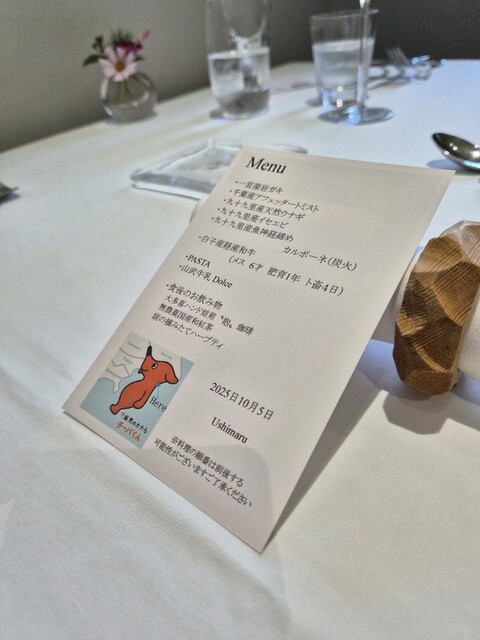 Menu
・一宮産岩ガキ
・千葉産アフェッタートミスト
・九十九里産天然ウナギ
・九十九里産イセエビ
・九十九里産魚神経締め
・白子産経産和牛 カルボーネ(炭火)
(メス 6才 肥育1年 ト畜4日)
・PASTA
・山武牛乳 Dolce
・食後のお飲み物
大多喜ハンド焙煎 〝抱〟 珈琲
無農薬国産和紅茶
庭の摘みたてハーブティ
Here
千葉県のかたち
チーバくん
2025日10月5日
Ushimaru
※料理の順番は前後する
可能性がございますご了承ください